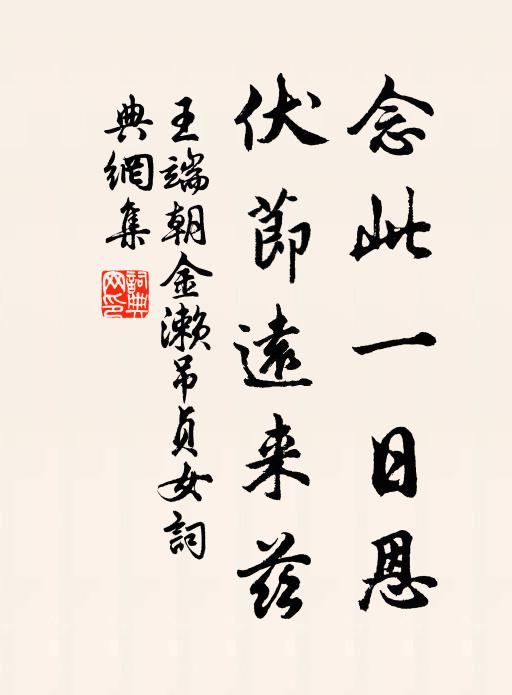 念此一日恩
伏節遠来茲
王端朝金濑吊貞女詞
典網集
詞典網印